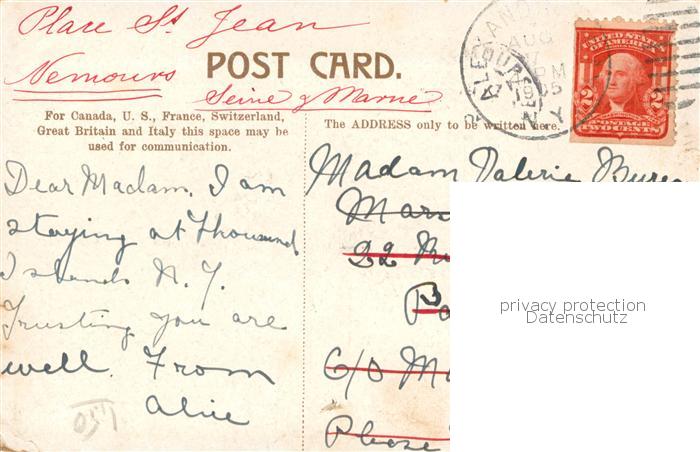 Place St Jean
Nemours
POST CARD.
Seine & Marne
For Canada, U. S., France, Switzerland,
Great Britain and Italy this space may be
used for communication.
The ADDRESS only to be written here.
AUG
PM
1905
N Y
UNITED STATES
OF AMERICA
2 2
POSTAGE
TWO CENTS
Dear Madam, I am
staying at Thousand
Islands N. Y.
Trusting you are
well. From
Alice
Madam Valerie
22
C/O M
Please
privacy protection
Datenschutz
1,50